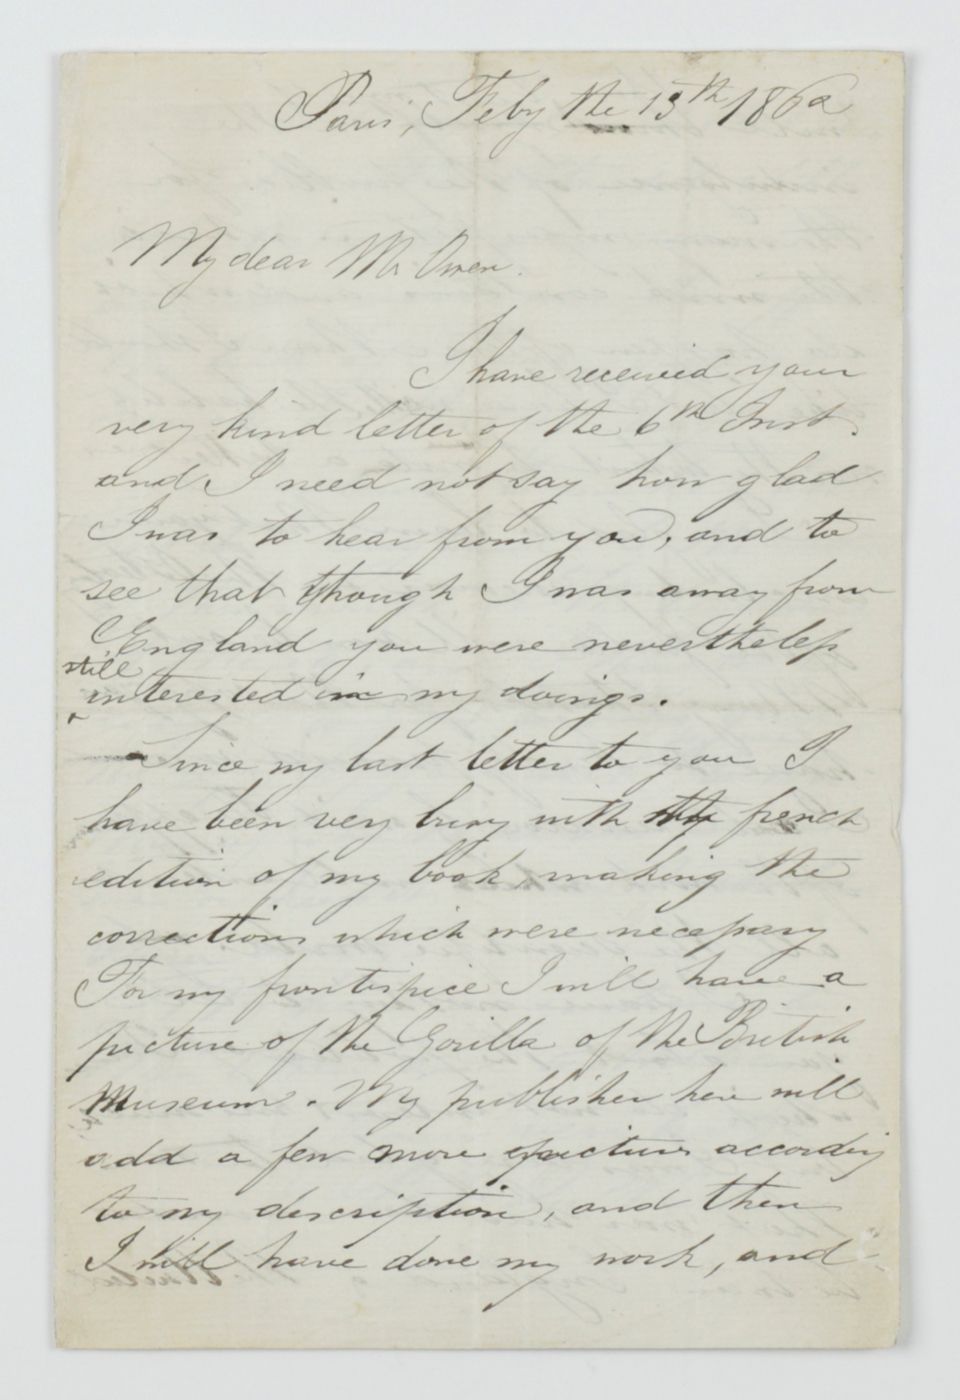 Paris, Feby the 13th 1862
My dear Mr Owen.
I have received your
very kind letter of the 6th Inst.
and I need not say how glad
I was to hear from you, and to
see that though I was away from
England you were nevertheless
still
interested in my doings.
Since my last letter to you I
have been very busy with the french
edition of my book, making the
corrections which were necessary
For my frontispice I will have a
picture of the Gorilla of the British
Museum. My publisher here will
add a few more pictures according
to my description, and then
I will have done my work, and